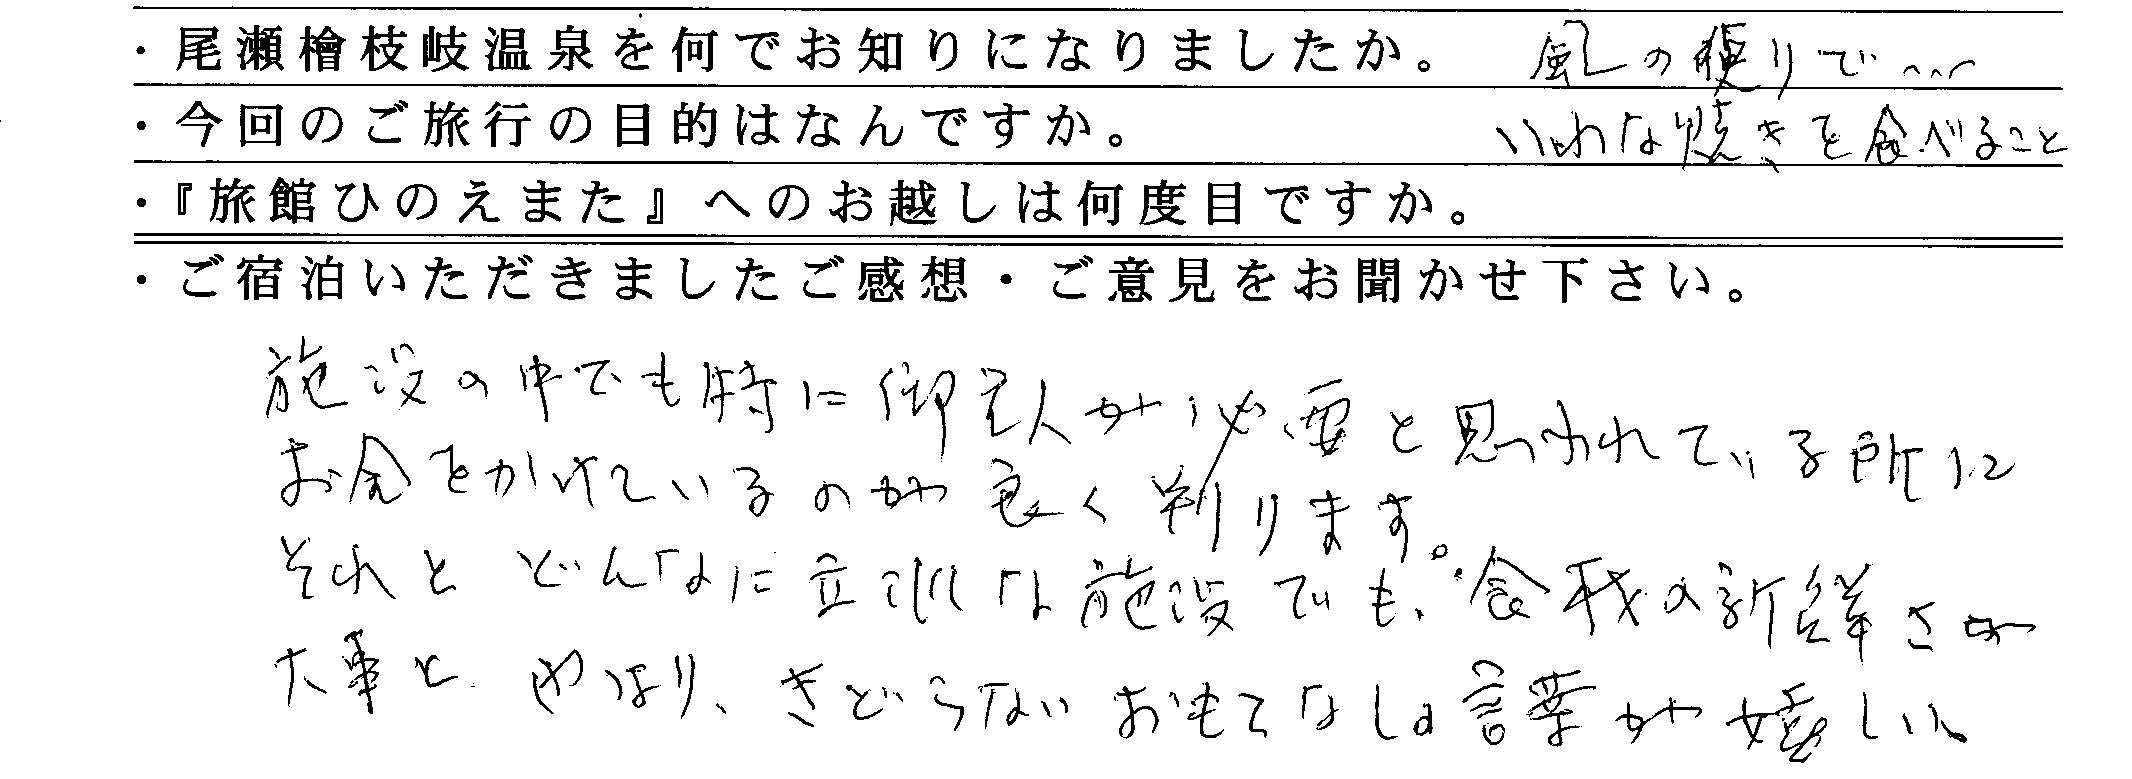 ・尾瀬檜枝岐温泉を何でお知りになりましたか。 風の便りで…
・今回のご旅行の目的はなんですか。 いわな焼きを食べること
・『旅館ひのえまた』へのお越しは何度目ですか。
・ご宿泊いただきましたご感想・ご意見をお聞かせ下さい。
施設の中でも特に御主人が必要と思われている所に
お金をかけているのが良く判ります。
それと どんなに立派な施設でも、食材の新鮮さが
大事と、やはり、きどらないおもてなしの言葉が嬉しい、